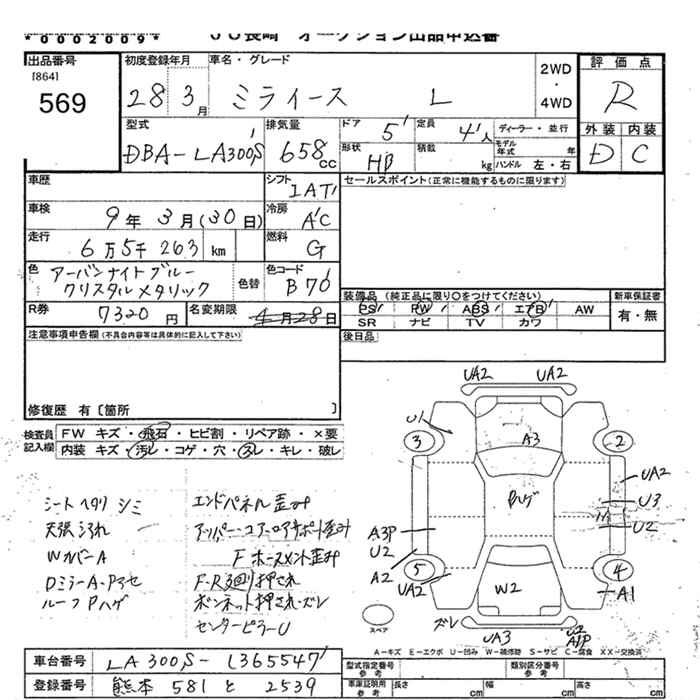 *0002009*
JU長崎 オークション出品申込書
出品番号
[864]
569
初度登録年月
28 3月
車名・グレード
ミライース L
2WD
・
4WD
評価点
R
外装 内装
D C
型式
DBA-LA300S
排気量
658cc
ドア 5
定員 4人
ディーラー・並行
形状 HB
積載 kg
モデル年式 年
ハンドル 左・右
車歴
シフト
IAT
セールスポイント(正常に機能するものに限ります)
車検
9年 3月(30日)
冷房
AC
走行
6万5千263 km
燃料
G
色
アーバンナイトブルー
クリスタルメタリック
色替
色コード
B70
装備品 (純正品に限り○をつけてください)
PS PW ABS エアB AW
SR ナビ TV カワ
新車保証書
有・無
R券
7320円
名変期限
4月28日
後日品
注意事項申告欄(不具合内容等は具体的に記入して下さい)
修復歴 有〔箇所 〕
検査員
記入欄
FW キズ・飛石・ヒビ割・リペア跡・×要
内装 キズ・汚レ・コゲ・穴・スレ・キレ・破レ
シートヘタリ シミ
天張汚れ
WカバーA
DミラーA・Pアセ
ルーフPハゲ
エンドパネル歪み
アッパー・コアーロアサポート歪み
Fホースメント歪み
F-R廻り押され
ボンネット押され・ズレ
センターピラーU
UA2 UA2
U1
3
A3
2
Pハゲ
UA2
U3
U2
A3P
U2
A2
5
UA2
W2
4
A1
スペア
ズレ
UA3
U2
A1P
A-キズ E-エクボ U-凹み W-補修跡 S-サビ C-腐食 XX-交換済
車台番号
LA300S-1365547
登録番号
熊本 581 と 2539
型式指定番号
参考
類別区分番号
参考
車庫証明用
参考
長さ cm
幅 cm
高さ cm